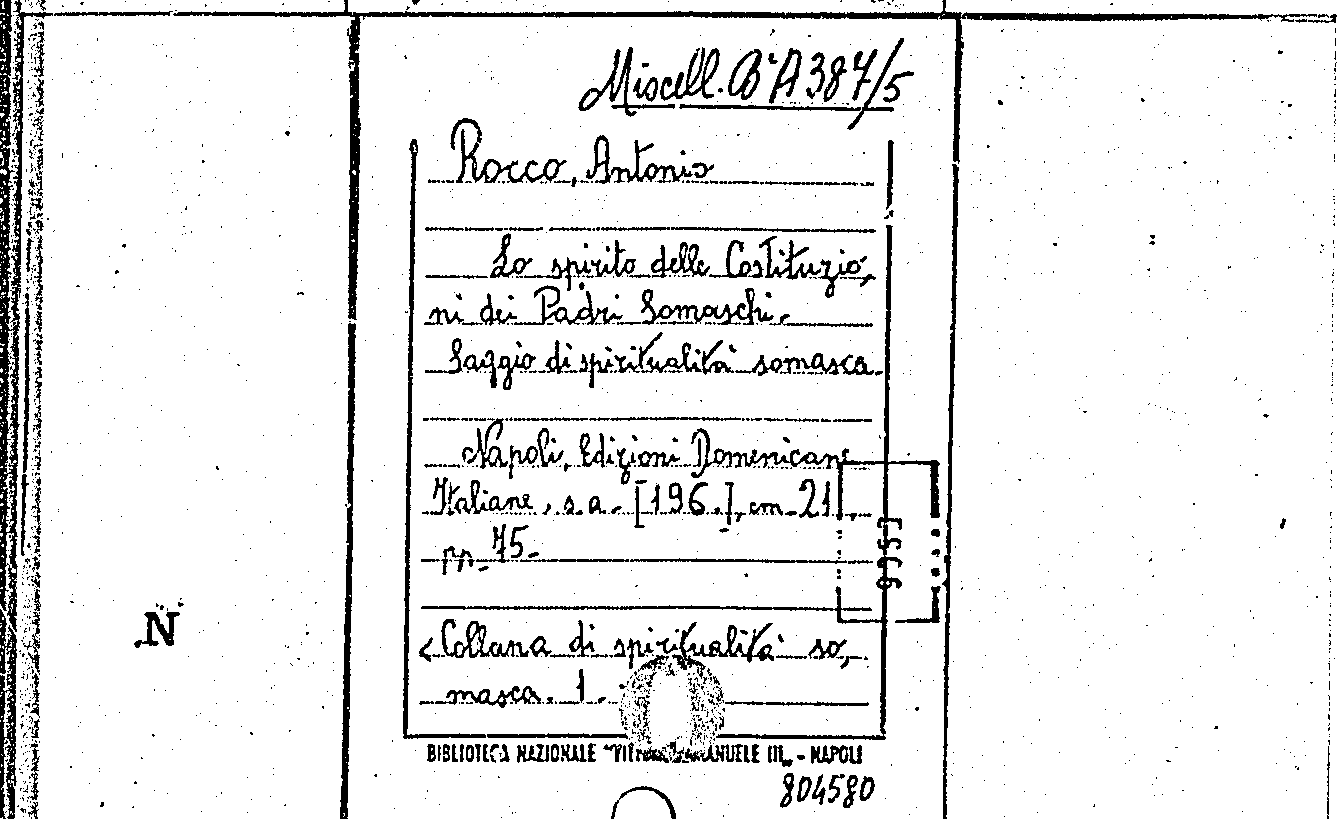 Miscell. B'A 387/5
Rocco, Antonio
Lo spirito delle Costituzio,
ni dei Padri Somaschi.
Saggio di spiritualità somasca.
Napoli, Edizioni Domenicane
Italiane, s.a. [196.], cm. 21,
pp. 75.
<Collana di spiritualità so,
masca. 1.
N
BIBLIOTECA NAZIONALE "VITTORIO EMANUELE III" - NAPOLI
804580